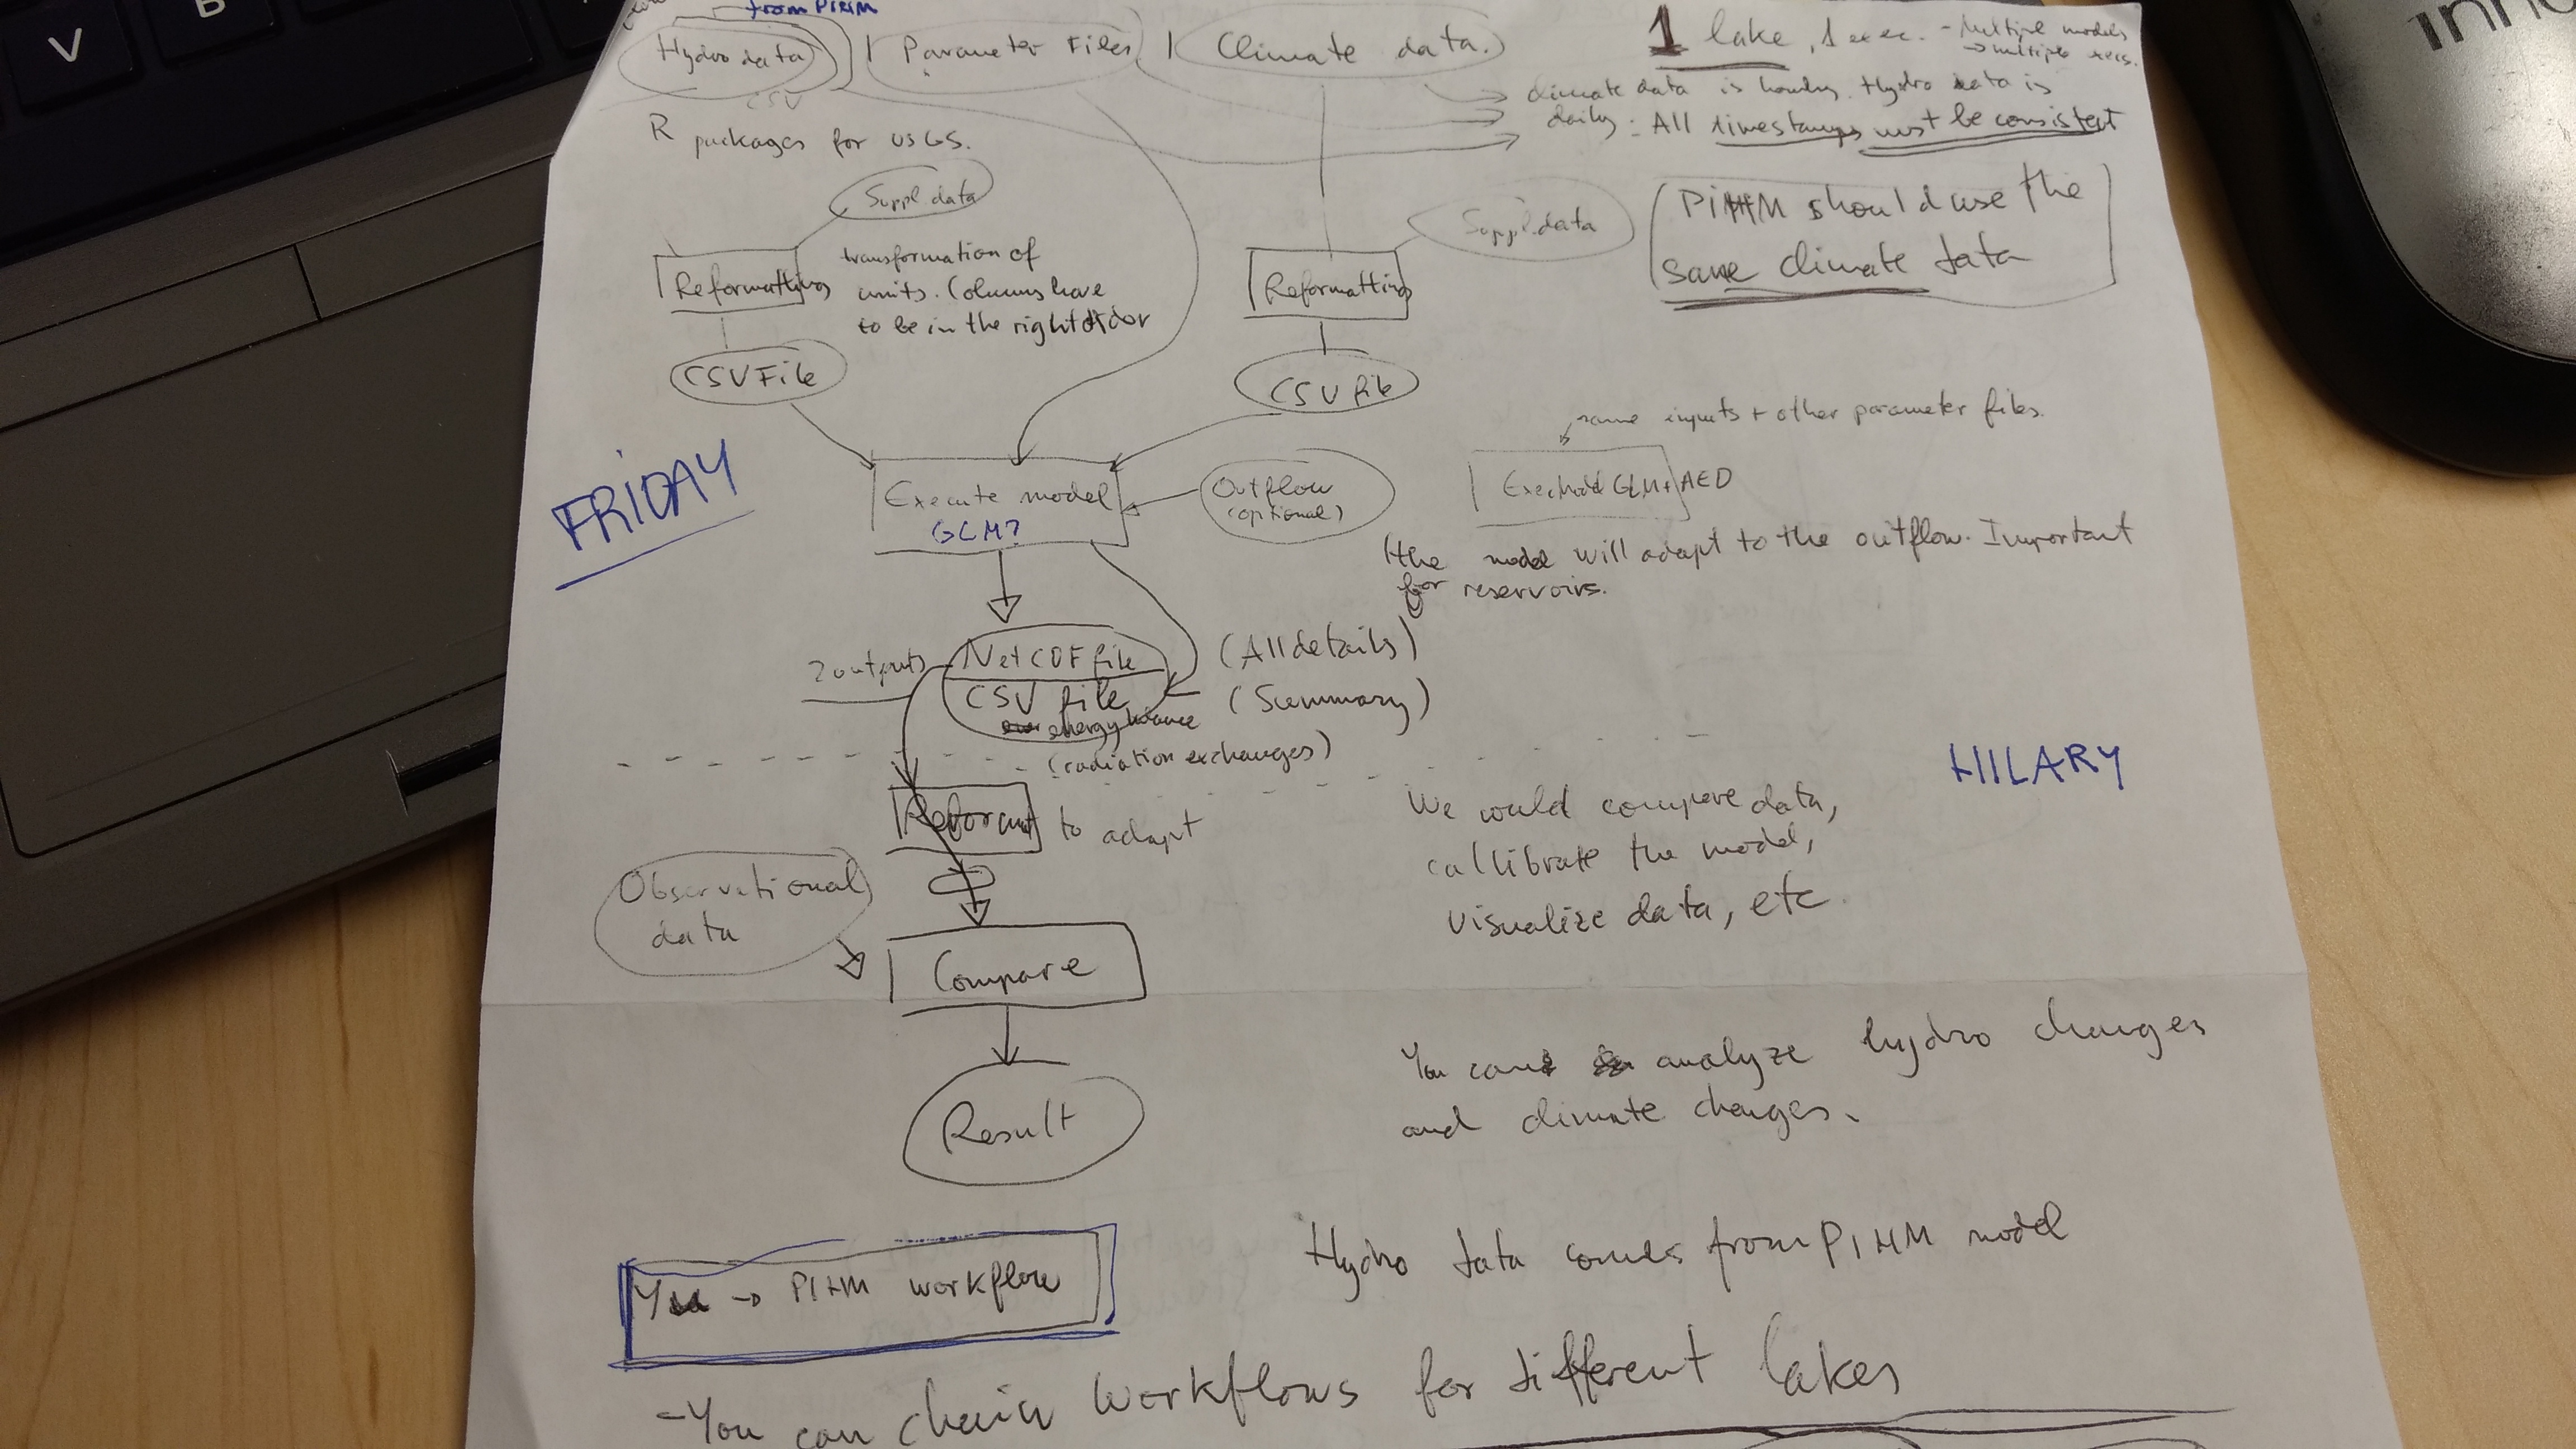 V
B
from PIHM
Hydro data
Parameter Files
Climate data.
1 lake, 1 exec. - Multiple models
→ multiple execs.
CSV
climate data is hourly. Hydro data is
daily. All timestamps must be consistent
R packages for USGS.
Suppl. data
Suppl. data
PIHM should use the
same climate data
Reformatting
transformation of
units. Columns have
to be in the right
Reformatting
CSV File
CSV file
same inputs + other parameter files.
FRIDAY
Execute model
GLM?
Outflow
(optional)
Exec model GLM+AED
(the model will adapt to the outflow. Important
for reservoirs.
2 outputs
NetCDF file
(All details)
CSV file
(Summary)
energy balance
(radiation exchanges)
HILARY
Reformat to adapt
We would compare data,
callibrate the model,
visualize data, etc.
Observational
data
Compare
You can analyze hydro changes
and climate changes.
Result
Hydro data comes from PIHM model
→ PIHM workflow
- You can chain workflows for different lakes
inno